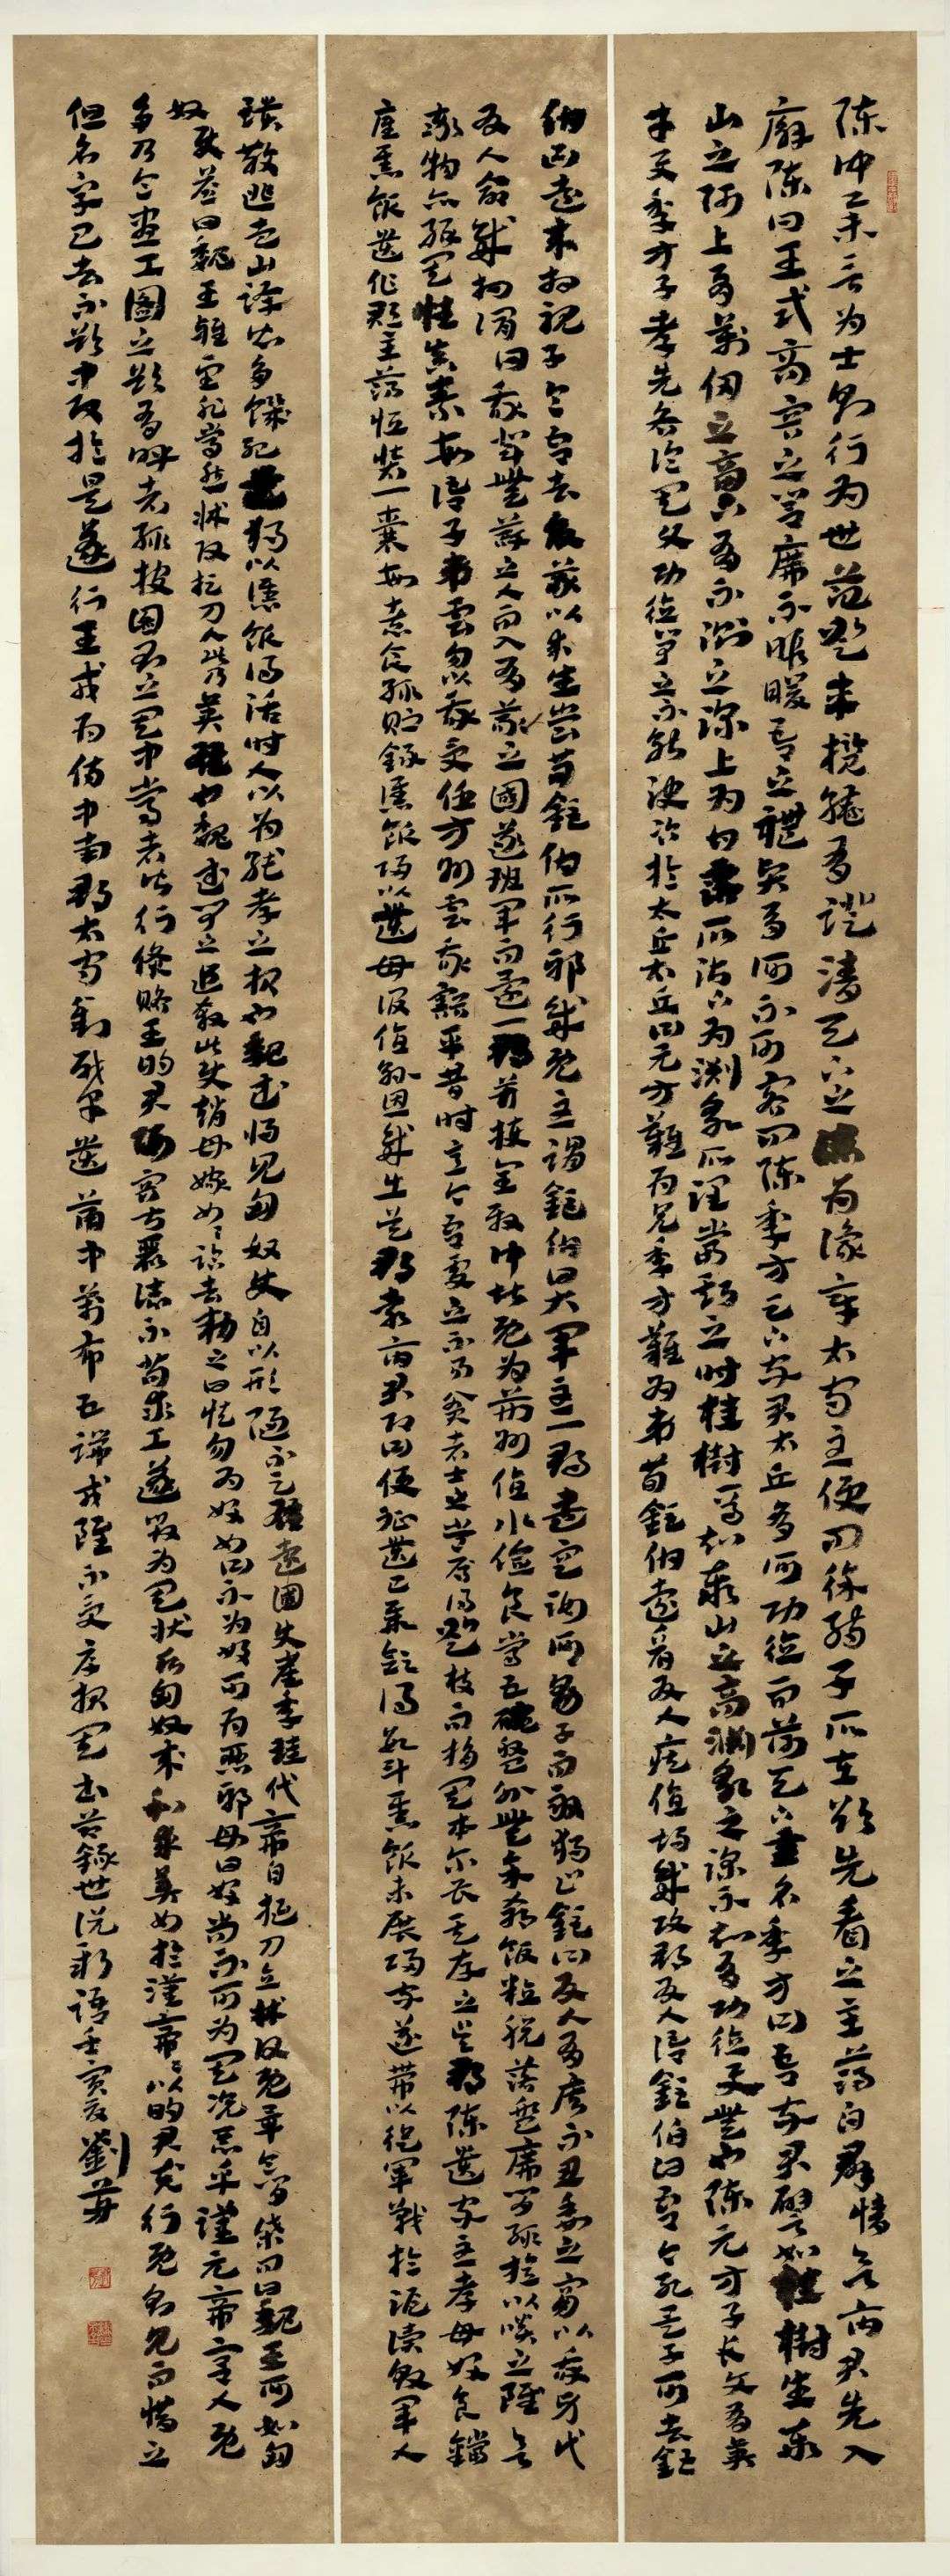 陈仲举言为士则行为世范登车揽辔有澄清天下之志为豫章太守至便问徐孺子所在欲先看之主簿白群情欲府君先入
廨陈曰王式商容之闾席不暇暖吾之礼贤有何不可客问陈季方足下家君太丘有何功德而荷天下重名季方曰吾家君譬如桂树生泰
山之阿上有万仞之高下有不测之深上为甘露所沾下为渊泉所润当斯之时桂树焉知泰山之高渊泉之深不知有功德与无也陈元方子长文有英
才与季方子孝先各论其父功德争之不能决咨于太丘太丘曰元方难为兄季方难为弟荀巨伯远看友人疾值胡贼攻郡友人语巨伯曰吾今死矣子可去巨
伯曰远来相视子令吾去败义以求生岂荀巨伯所行邪贼既至谓巨伯曰大军至一郡尽空汝何男子而敢独止巨伯曰友人有疾不忍委之宁以我身代
友人命贼相谓曰我辈无义之人而入有义之国遂班军而还一郡并获全殷仲堪既为荆州值水俭食常五碗盘外无余肴饭粒脱落盘席间辄拾以啖之虽欲
率物亦缘其性真素每语子弟云勿以我受任方州云我豁平昔时意今吾处之不易贫者士之常焉得登枝而捐其本尔曹其存之吴郡陈遗家至孝母好食铛
底焦饭遗作郡主簿恒装一囊每煮食辄贮录焦饭归以遗母后值孙恩贼出吴郡袁府君即日便征遗已聚敛得数斗焦饭未展归家遂带以从军战于沪渎败军人
溃散逃走山泽皆多饥死遗独以焦饭得活时人以为纯孝之报也魏武将见匈奴使自以形陋不足雄远国使崔季珪代帝自捉刀立床头既毕令间谍问曰魏王何如匈
奴使答曰魏王雅望非常然床头捉刀人此乃英雄也魏武闻之追杀此使赵母嫁女女临去敕之曰慎勿为好女曰不为好可为恶邪母曰好尚不可为其况恶乎汉元帝宫人既
多乃令画工图之欲有呼者辄披图召之其中常者皆行货赂王昭君姿容甚丽志不苟求工遂毁为其状后匈奴来和求美女于汉帝帝以昭君充行既召见而惜之
但名字已去不欲中改于是遂行王戎为侍中南郡太守刘肇遗筒中笺布五端戎虽不受厚报其书节录世说新语壬寅夏刘